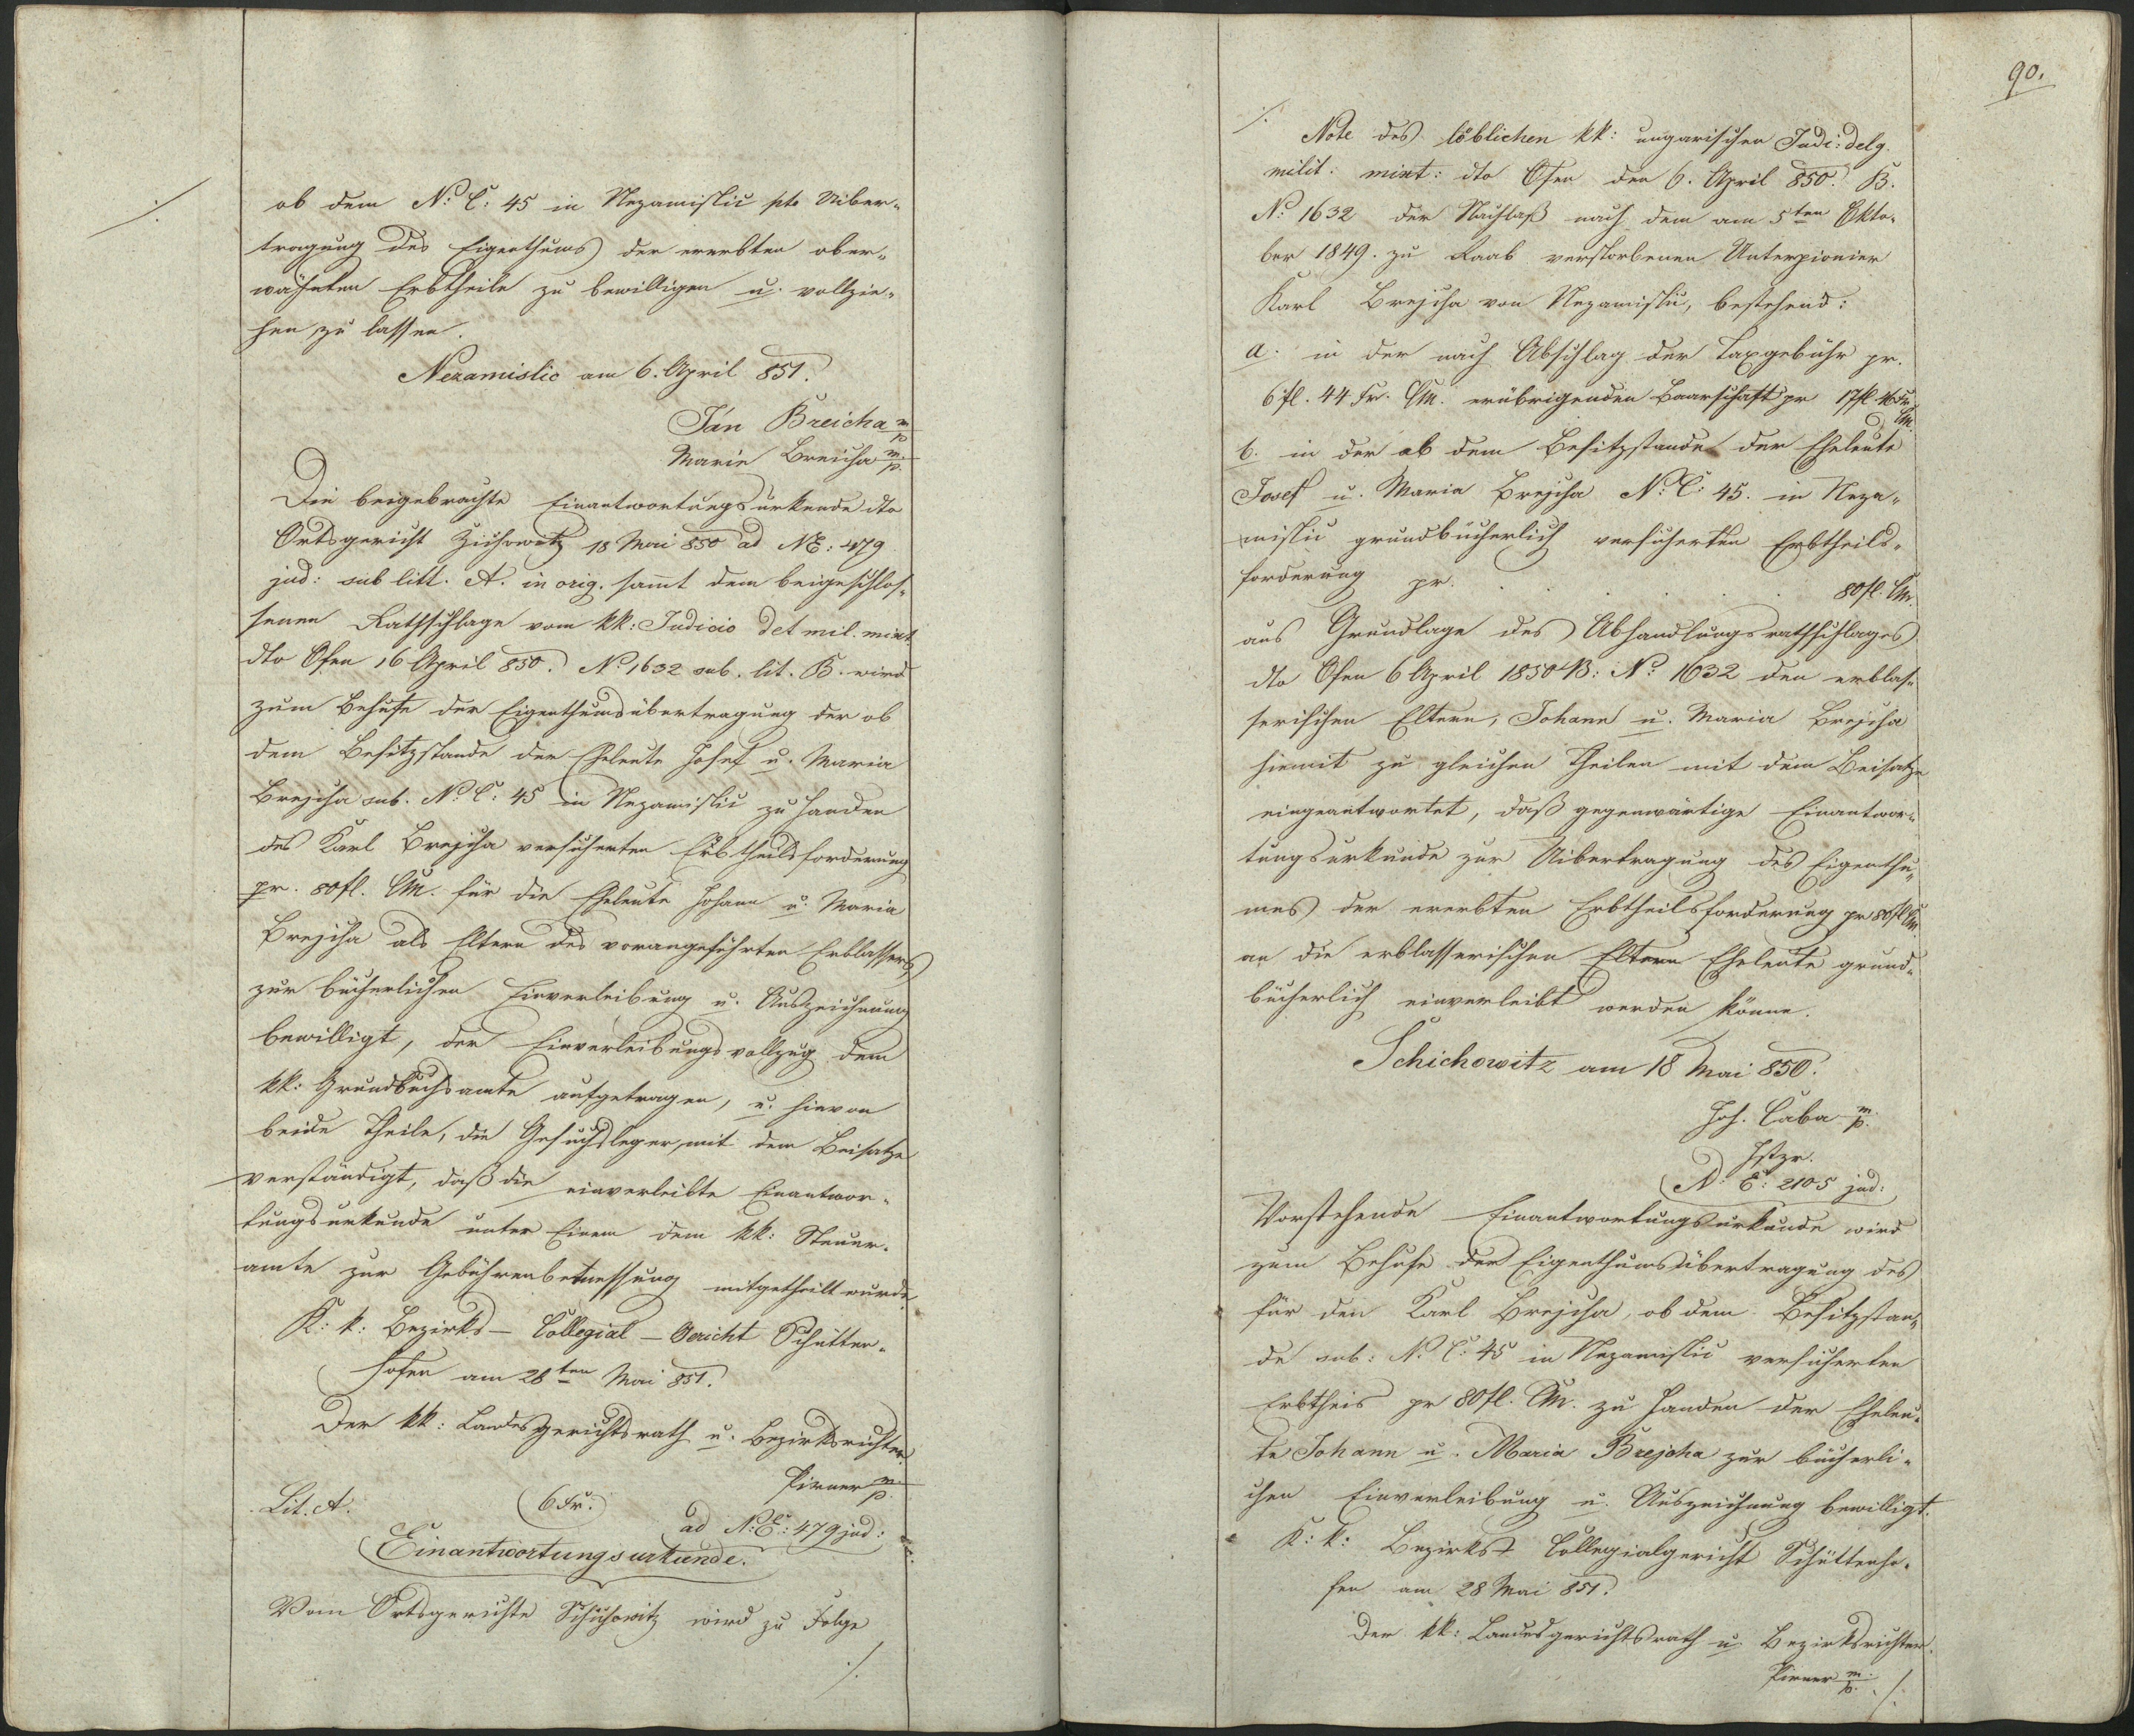 ./.
ob dem N: C: 45 in Nezamislic pto Uiber-
tragung des Eigenthums der ererbten ober-
wähnten Erbtheile zu bewilligen u. vollzie-
hen zu lassen.
Nezamislic am 6. April 851.
Ján Breicha m/p
Marie Breicha m/p.
Die beigebrachte Einantwortungsurkunde dto
Ortsgericht Zichowitz 18 Mai 850 ad NE: 479
jud: sub litt. A. in orig. samt dem beigeschlos-
senen Rathschlage vom kk: Judicio del mil. mixt.
dto Ofen 16 April 850. No 1632 sub. lit. B. wird
zum Behufe der Eigenthumsübertragung der ob
dem Besitzstande der Eheleute Josef u. Maria
Brejcha sub. N: C: 45 in Nezamislic zu Handen
des Karl Brejcha versicherten Erbtheilsforderung
pr. 80 fl. CM. für die Eheleute Johann u. Maria
Brejcha als Eltern des vorangeführten Erblassers
zur bücherlichen Einverleibung u. Auszeichnung
bewilligt, der Einverleibungsvollzug dem
kk: Grundbuchsamte aufgetragen, u. hievon
beide Theile, die Gesuchsleger, mit dem Beisatze
verständigt, daß die einverleibte Einantwor-
tungsurkunde unter Einem dem kk: Steuer-
amte zur Gebührenbemessung mitgetheilt wurde.
K: k: Bezirks- Collegial- Gericht Schütten-
hofen am 28ten Mai 851.
Der kk: Landesgerichtsrath u. Bezirksrichter
Pirner m/p.
Lit. A.
(6 kr.)
ad N: E: 479 jud:
Einantwortungsurkunde.
Vom Ortsgerichte Schichowitz wird zu Folge
./.
90.
./.
Note des löblichen kk: ungarischen Judi: delg.
milit: mixt: dto Ofen den 6. April 850. B.
No 1632 der Nachlaß nach dem am 5ten Okto-
ber 1849. zu Raab verstorbenen Unterpionier
Karl Brejcha von Nezamislic, bestehend:
a. in der nach Abschlag der Taxgebühr pr.
6 fl. 44 kr. CM. erübrigenden Baarschaft pr 17 fl 46 kr CM.
b. in der ob dem Besitzstande der Eheleute
Josef u. Maria Brejcha N: C: 45. in Neza-
mislic grundbücherlich versicherten Erbtheils-
forderung pr. . . . . 80 fl. CM.
aus Grundlage des Abhandlungsrathschlages
dto Ofen 6 April 1850 B: No 1632 den erblas-
serischen Eltern, Johann u. Maria Brejcha
hiemit zu gleichen Theilen mit dem Beisatze
eingeantwortet, daß gegenwärtige Einantwor-
tungsurkunde zur Uibertragung des Eigenthu-
mes der ererbten Erbtheilsforderung pr 80 fl CM.
an die erblasserischen Eltern Eheleute grund-
bücherlich einverleibt werden könne.
Schichowitz am 18 Mai 850.
Joh. Caba m/p.
Jstzr.
N: E: 2105 jud:
Vorstehende Einantwortungsurkunde wird
zum Behufe der Eigenthumsübertragung des
für den Karl Brejcha, ob dem Besitzstan-
de sub: N: C: 45 in Nezamislic versicherten
Erbtheis pr 80 fl. CM. zu Handen der Eheleu-
te Johann u. Maria Brejcha zur bücherli-
chen Einverleibung u. Auszeichnung bewilligt.
K: k: Bezirks- Collegialgericht Schüttenho-
fen am 28 Mai 851.
Der kk: Landesgerichtsrath u. Bezirksrichter.
Pirner m/p.
./.